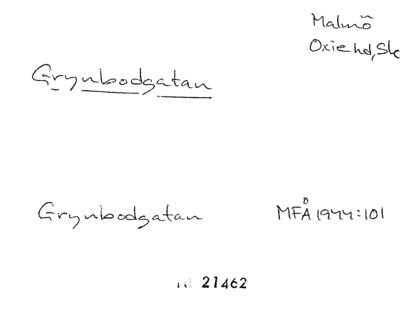 Malmö
Oxie hd, Sk
Grynbodgatan
Grynbodgatan MFÅ 1944:101
21462